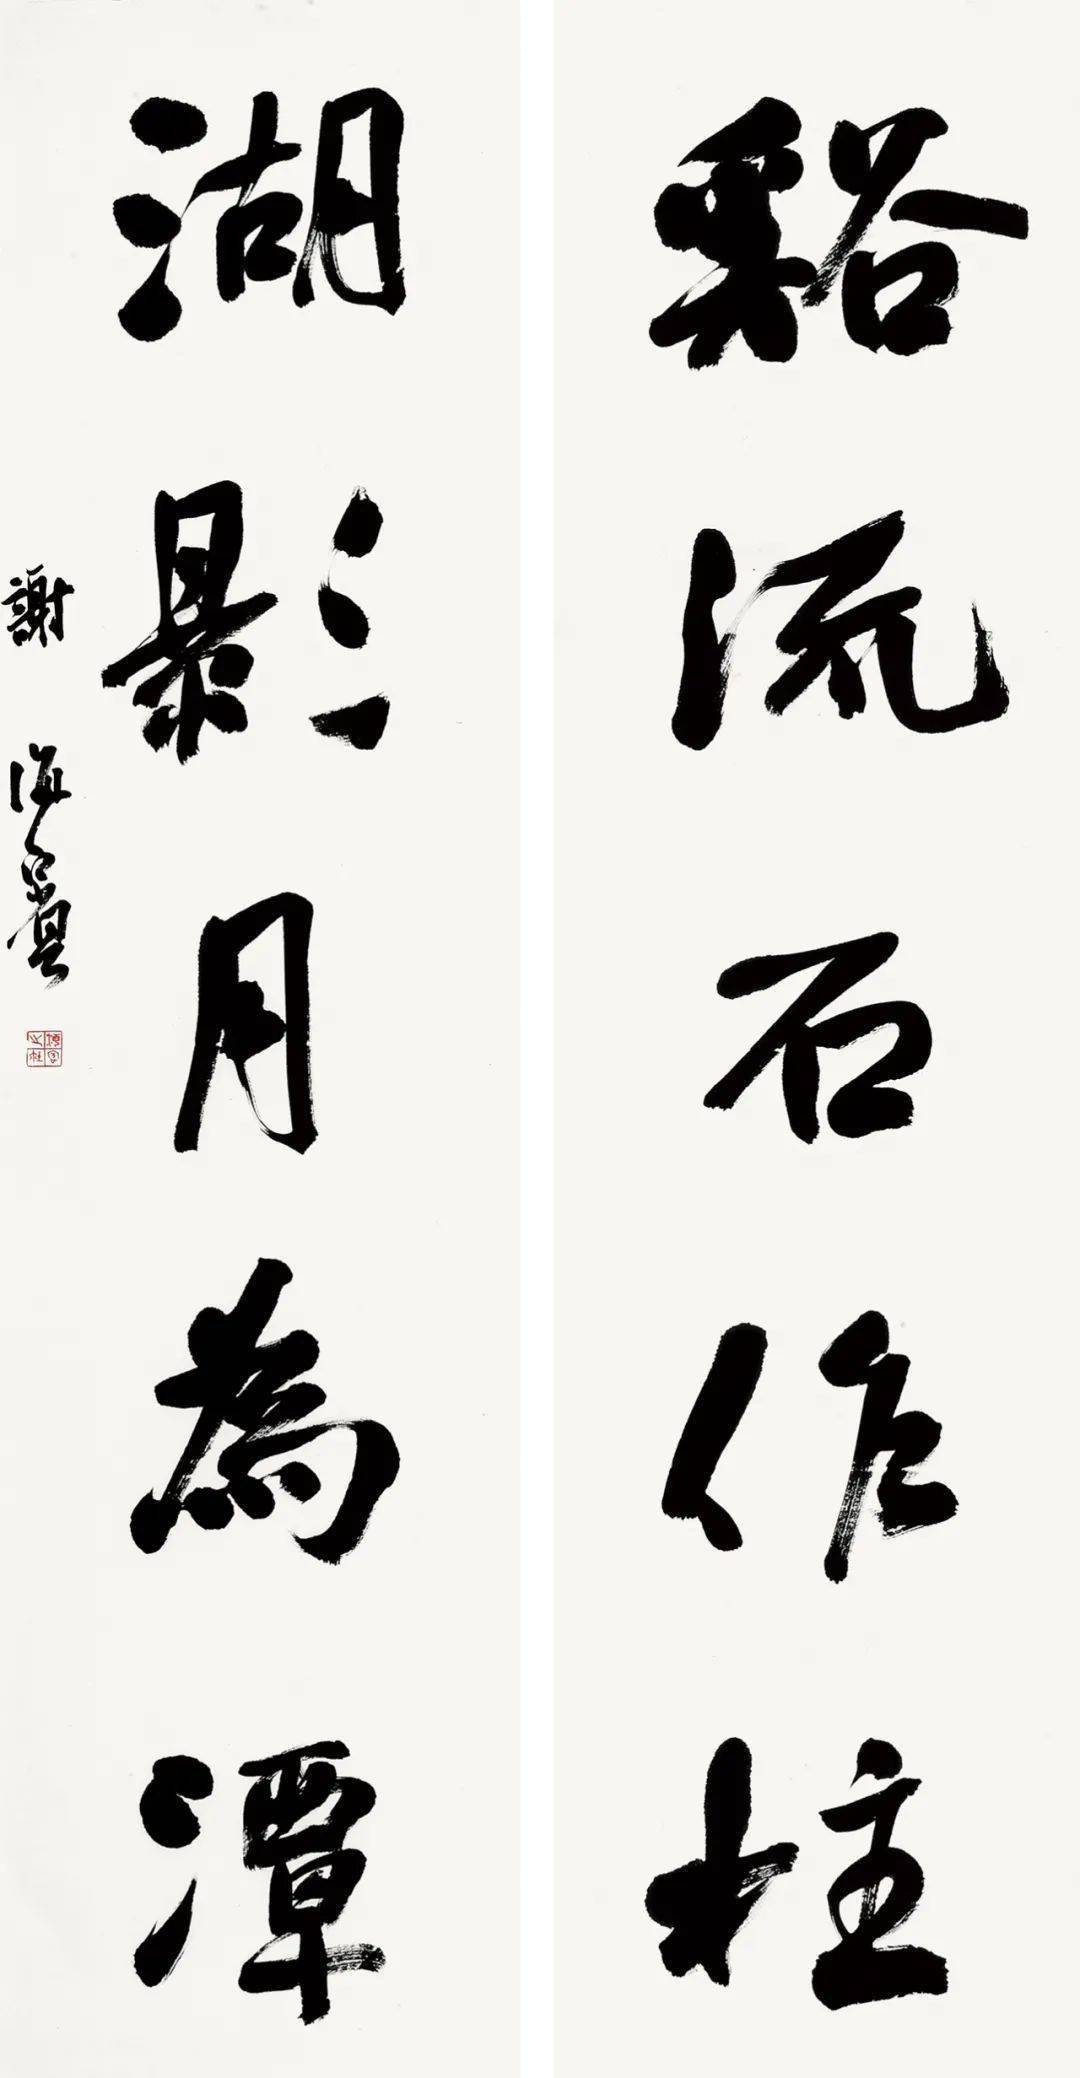 谿流石作柱
湖影月為潭
謝海寬